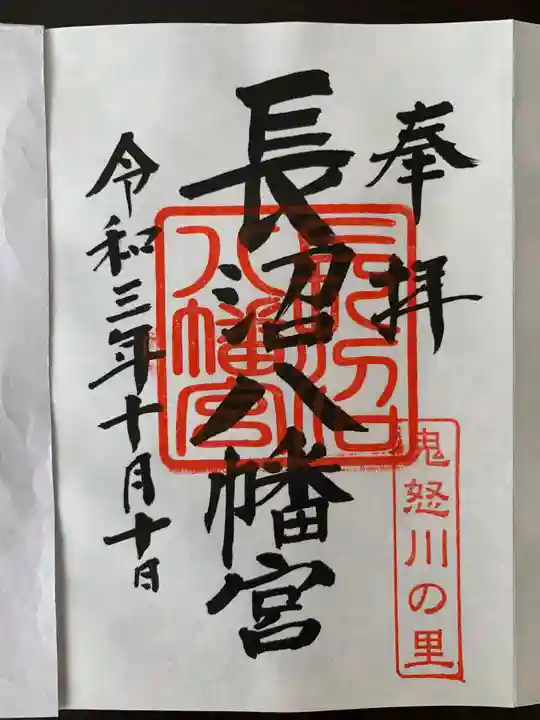 奉拝
鬼怒川の里
長沼八幡宮
長沼
八幡宮
令和三年十月十日